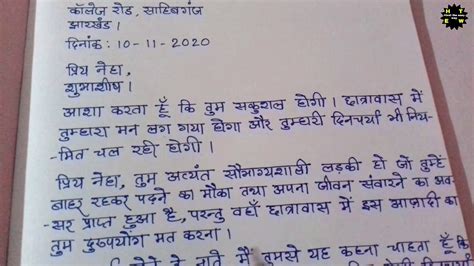 कॉलेज रोड, साहिबगंज
झारखंड।
दिनांक: 10-11-2020
प्रिय नेहा,
शुभाशीष।
आशा करता हूँ कि तुम सकुशल होगी। छात्रावास में
तुम्हारा मन लग गया होगा और तुम्हारी दिनचर्या भी निय-
-मित चल रही होगी।
प्रिय नेहा, तुम अत्यंत सौभाग्यशाली लड़की हो जो तुम्हें
बाहर रहकर पढ़ने का मौका तथा अपना जीवन संवारने का अव-
-सर प्राप्त हुआ है, परन्तु वहाँ छात्रावास में इस आज़ादी का
तुम दुरुपयोग मत करना।
होने के नाते मैं तुमसे यह कहना चाहता हूँ कि